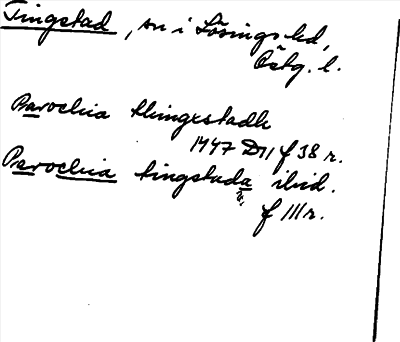 Tingstad, sn i Lösings hd,
Östg. l.
Parochia thingxstadh
1447 D11 f 38 r.
Parochia tingstada ibid.
f 111 r.